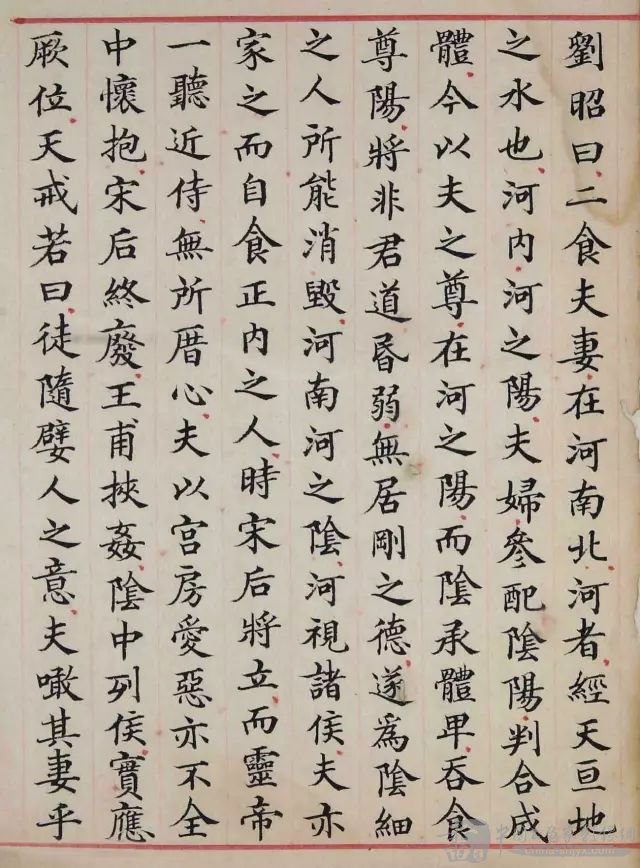 劉昭曰二食夫妻在河南北河者經天亘地
之水也河内河之陽夫婦參配陰陽判合成
體今以夫之尊在河之陽而陰承體卑吞食
尊陽將非君道昏弱無居剛之德遂為陰細
之人所能消毀河南河之陰河視諸侯夫亦
家之而自食正内之人時宋后將立而靈帝
一聽近侍無所厝心夫以宫房愛惡亦不全
中懷抱宋后終廢王甫挾姦陰中列侯實應
厥位天戒若曰徒隨嬖人之意夫噉其妻乎